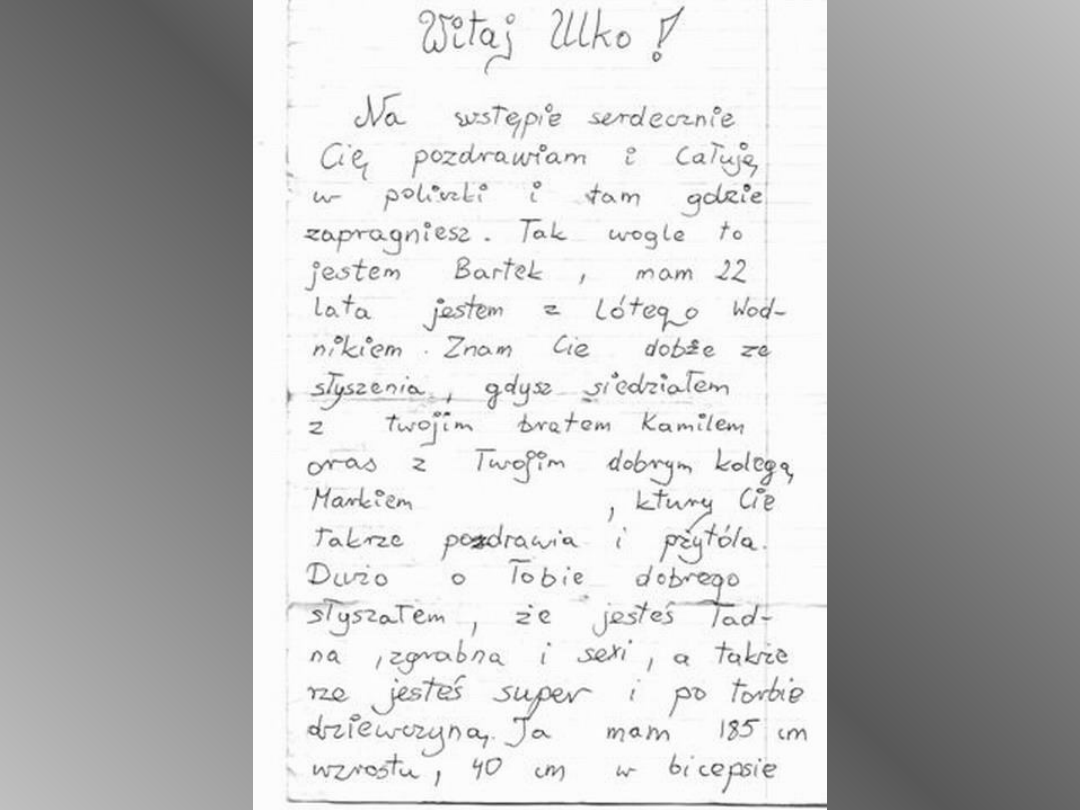 Witaj Ulko!
Na wstępie serdecznie
Cię pozdrawiam i Całuję
w poliszki i tam gdzie
zapragniesz. Tak wogle to
jestem Bartek, mam 22
lata jestem z Lótego Wod-
nikiem. Znam Cie dobże ze
słyszenia, gdysz siedziałem
z twojim bratem Kamilem
oras z Twojim dobrym kolegą
Markiem , ktury Cie
takrze pozdrawia i pżytóla.
Dużo o Tobie dobrego
słyszałem, że jesteś ład-
na, zgrabna i sexi, a takrze
rze jesteś super i po torbie
dziewczyną. Ja mam 185 cm
wzrostu, 40 cm w bicepsie